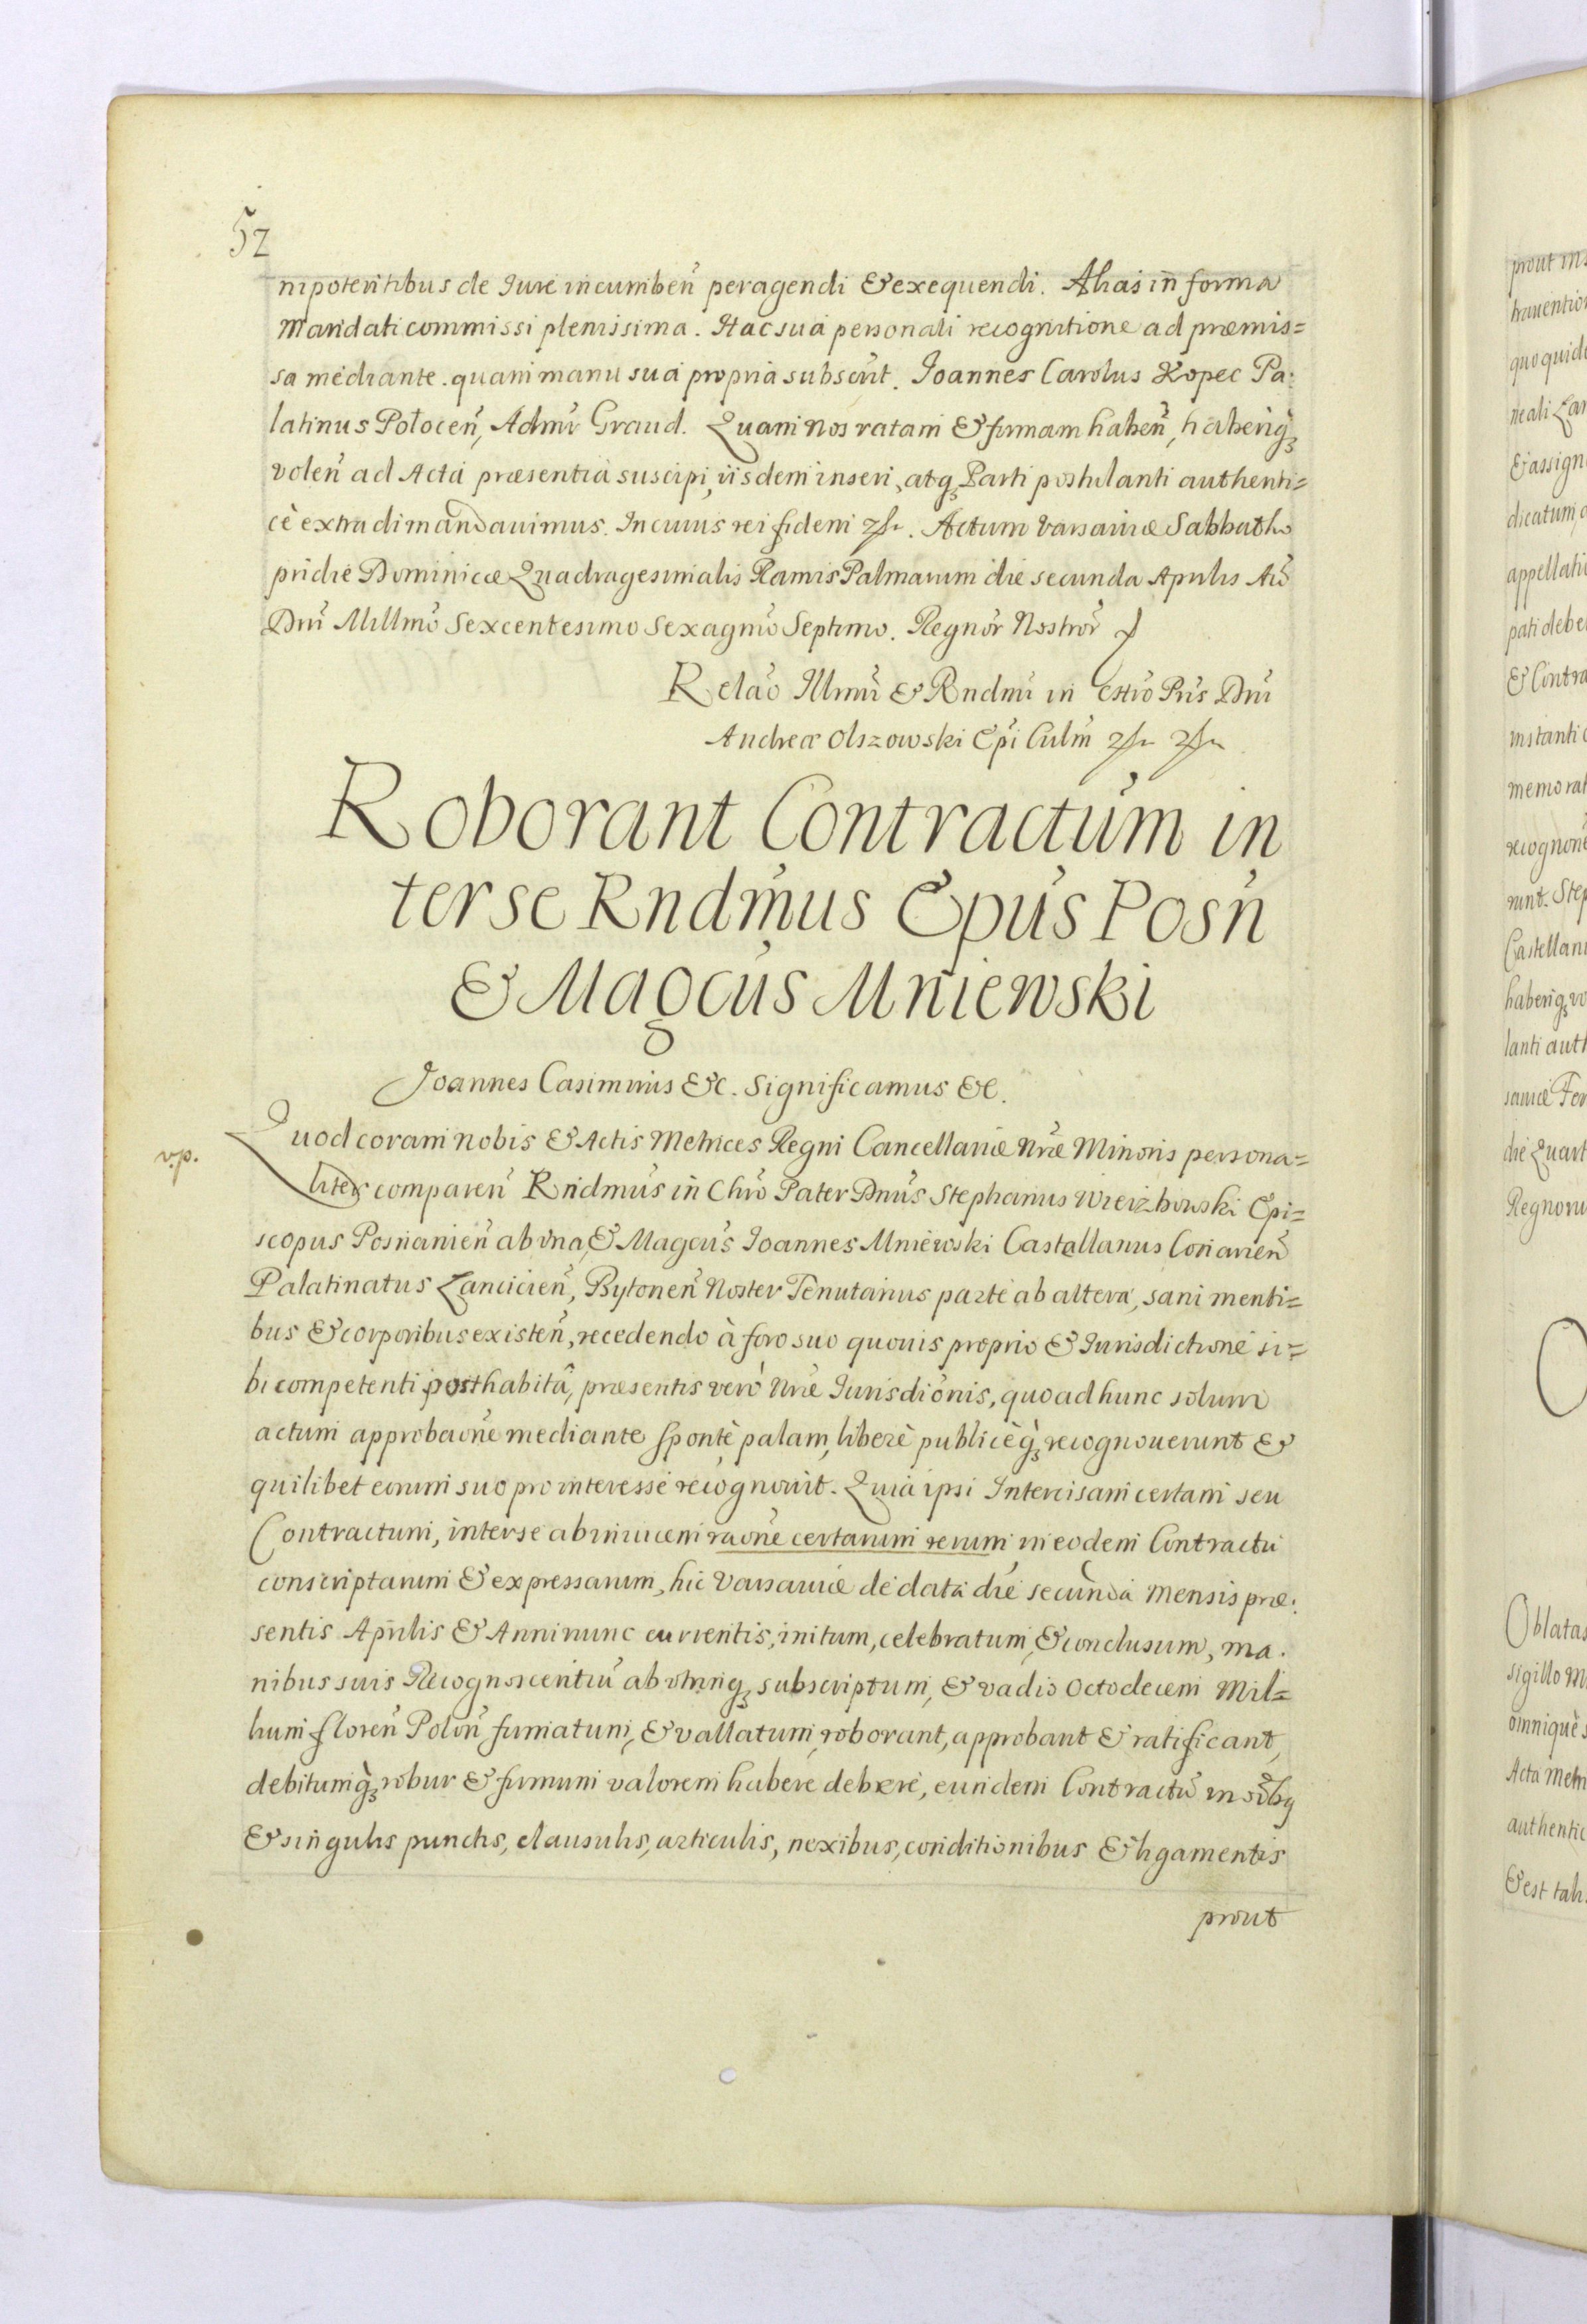 52
nipotentibus de Jure incumbeñ peragendi & exequendi. Alias in forma
Mandati commissi plenissima. Hac sua personali recognitione ad præmis=
sa mediante. quam manu sua propria subscrit. Joannes Carolus Kopec Pa:
latinus Poloceñ, Admr Graud. Quam nos ratam & firmam habeñ, haberiq̃
voleñ ad Acta præsentia suscipi, iisdem inseri, atq̃ Parti postulanti authenti=
cè extradi mandauimus. In cuius rei fidem. Actum Varsauiæ Sabbatho
pridie Dominicæ Quadragesimalis Ramis Palmarum die secunda Aprilis Ao
Dni Millmo Sexcentesimo Sexagmo Septimo. Regnor Nostror
Relao Illmi & Rndmi in Chro Pris Dni
Andreæ Olszowski Epi Culm
Roborant Contractum in
ter se Rndmus Epus Posñ
& Magcus Mniewski
Joannes Casimirus &c. Significamus &c.
v.p.
Quod coram nobis & Actis Metrices Regni Cancellariæ Nræ Minoris persona=
liter compareñ Rndmus in Chro Pater Dnus Stephanus Wierzbowski Epi=
scopus Posnanieñ ab vna, & Magcus Joannes Mniewski Castellanus Conarieñ
Palatinatus Lancicieñ, Bytoneñ Noster Tenutarius parte ab altera, sani menti=
bus & corporibus existeñ, recedendo à foro suo quouis proprio & Jurisdictione si=
bi competenti posthabitâ, præsentis verò Nræ Jurisdionis, quo ad hunc solum
actum approbaone mediante sponte palam, liberè publicèq̃ recognouerunt &
quilibet eorum suo pro interesse recognouit. Quia ipsi Intercisam certam seu
Contractum, inter se ab inuicem raone certarum rerum in eodem Contractu
conscriptarum & expressarum, hic Varsauiæ de data die secunda Mensis præ:
sentis Aprilis & Anni nunc currentis, initum, celebratum, & conclusum, ma.
nibus suis Recognoscentiu ab vtrinq̃ subscriptum, & vadio octodecem Mil=
lium floreñ Poloñ firmatum, & vallatum, roborant, approbant & ratificant,
debitumq̃ robur & firmum valorem habere debere, eundem Contractu in oibq
& singulis punctis, clausulis, articulis, nexibus, conditionibus & ligamentis
prout